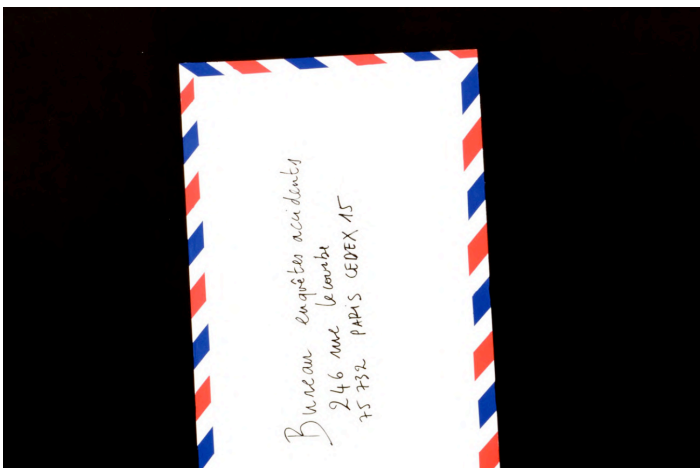 Bureau enquêtes accidents
246 rue Lecourbe
75732 PARIS CEDEX 15